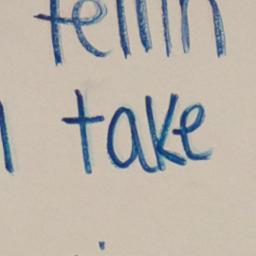 tellin
take